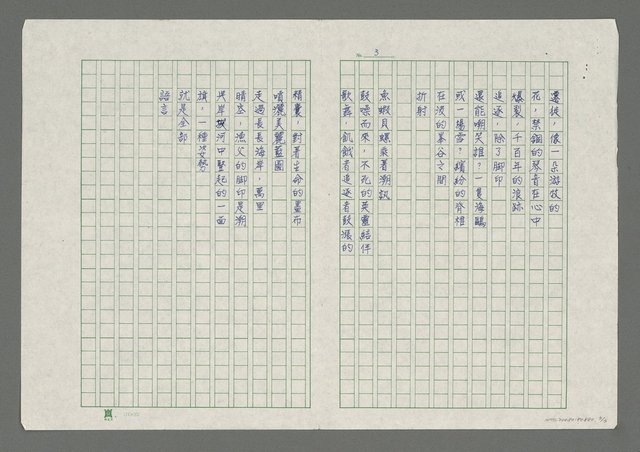 No. 3
遷徙，像一朵游牧的
花，禁錮的琴音在心中
爆裂，千百年的浪跡
追逐，除了腳印
還能嘲笑誰？一隻海鷗
或一場雪？繽紛的脊椎
在波的幕谷之間
折射
魚蝦貝螺乘著潮訊
鼓噪而來，不死的英靈結伴
歌舞，飢餓者追逐者鼓漲的
精囊，對著生命的畫布
噴灑美麗藍圖
走過長長海岸，萬里
晴空，漁父的腳印是潮
與岸拔河中豎起的一面
旗，一種姿勢
就是全部
語言